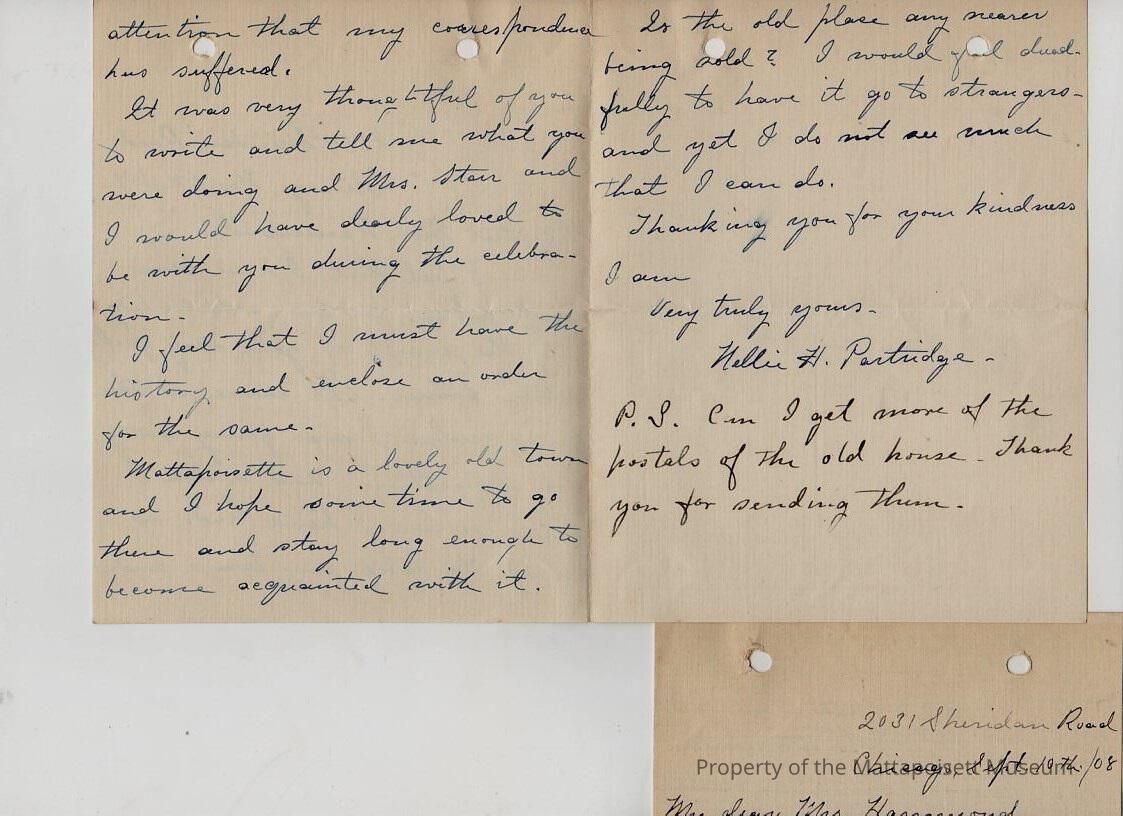 attention that my correspondence
has suffered.
It was very thoughtful of you
to write and tell me what you
were doing and Mrs. Starr and
I would have dearly loved to
be with you during the celebra-
tion.
I feel that I must have the
history and enclose an order
for the same.
Mattapoisette is a lovely old town
and I hope some time to go
there and stay long enough to
become acquainted with it.
Is the old place any nearer
being sold? I would feel dread-
fully to have it go to strangers-
and yet I do not see much
that I can do.
Thanking you for your kindness
I am
Very truly yours-
Nellie H. Partridge-
P.S. Can I get more of the
postals of the old house - Thank
you for sending them.
2031 Sheridan Road
Chicago, Sept 10th/08
Property of the Mattapoisett Museum
My dear Mrs. Hammond